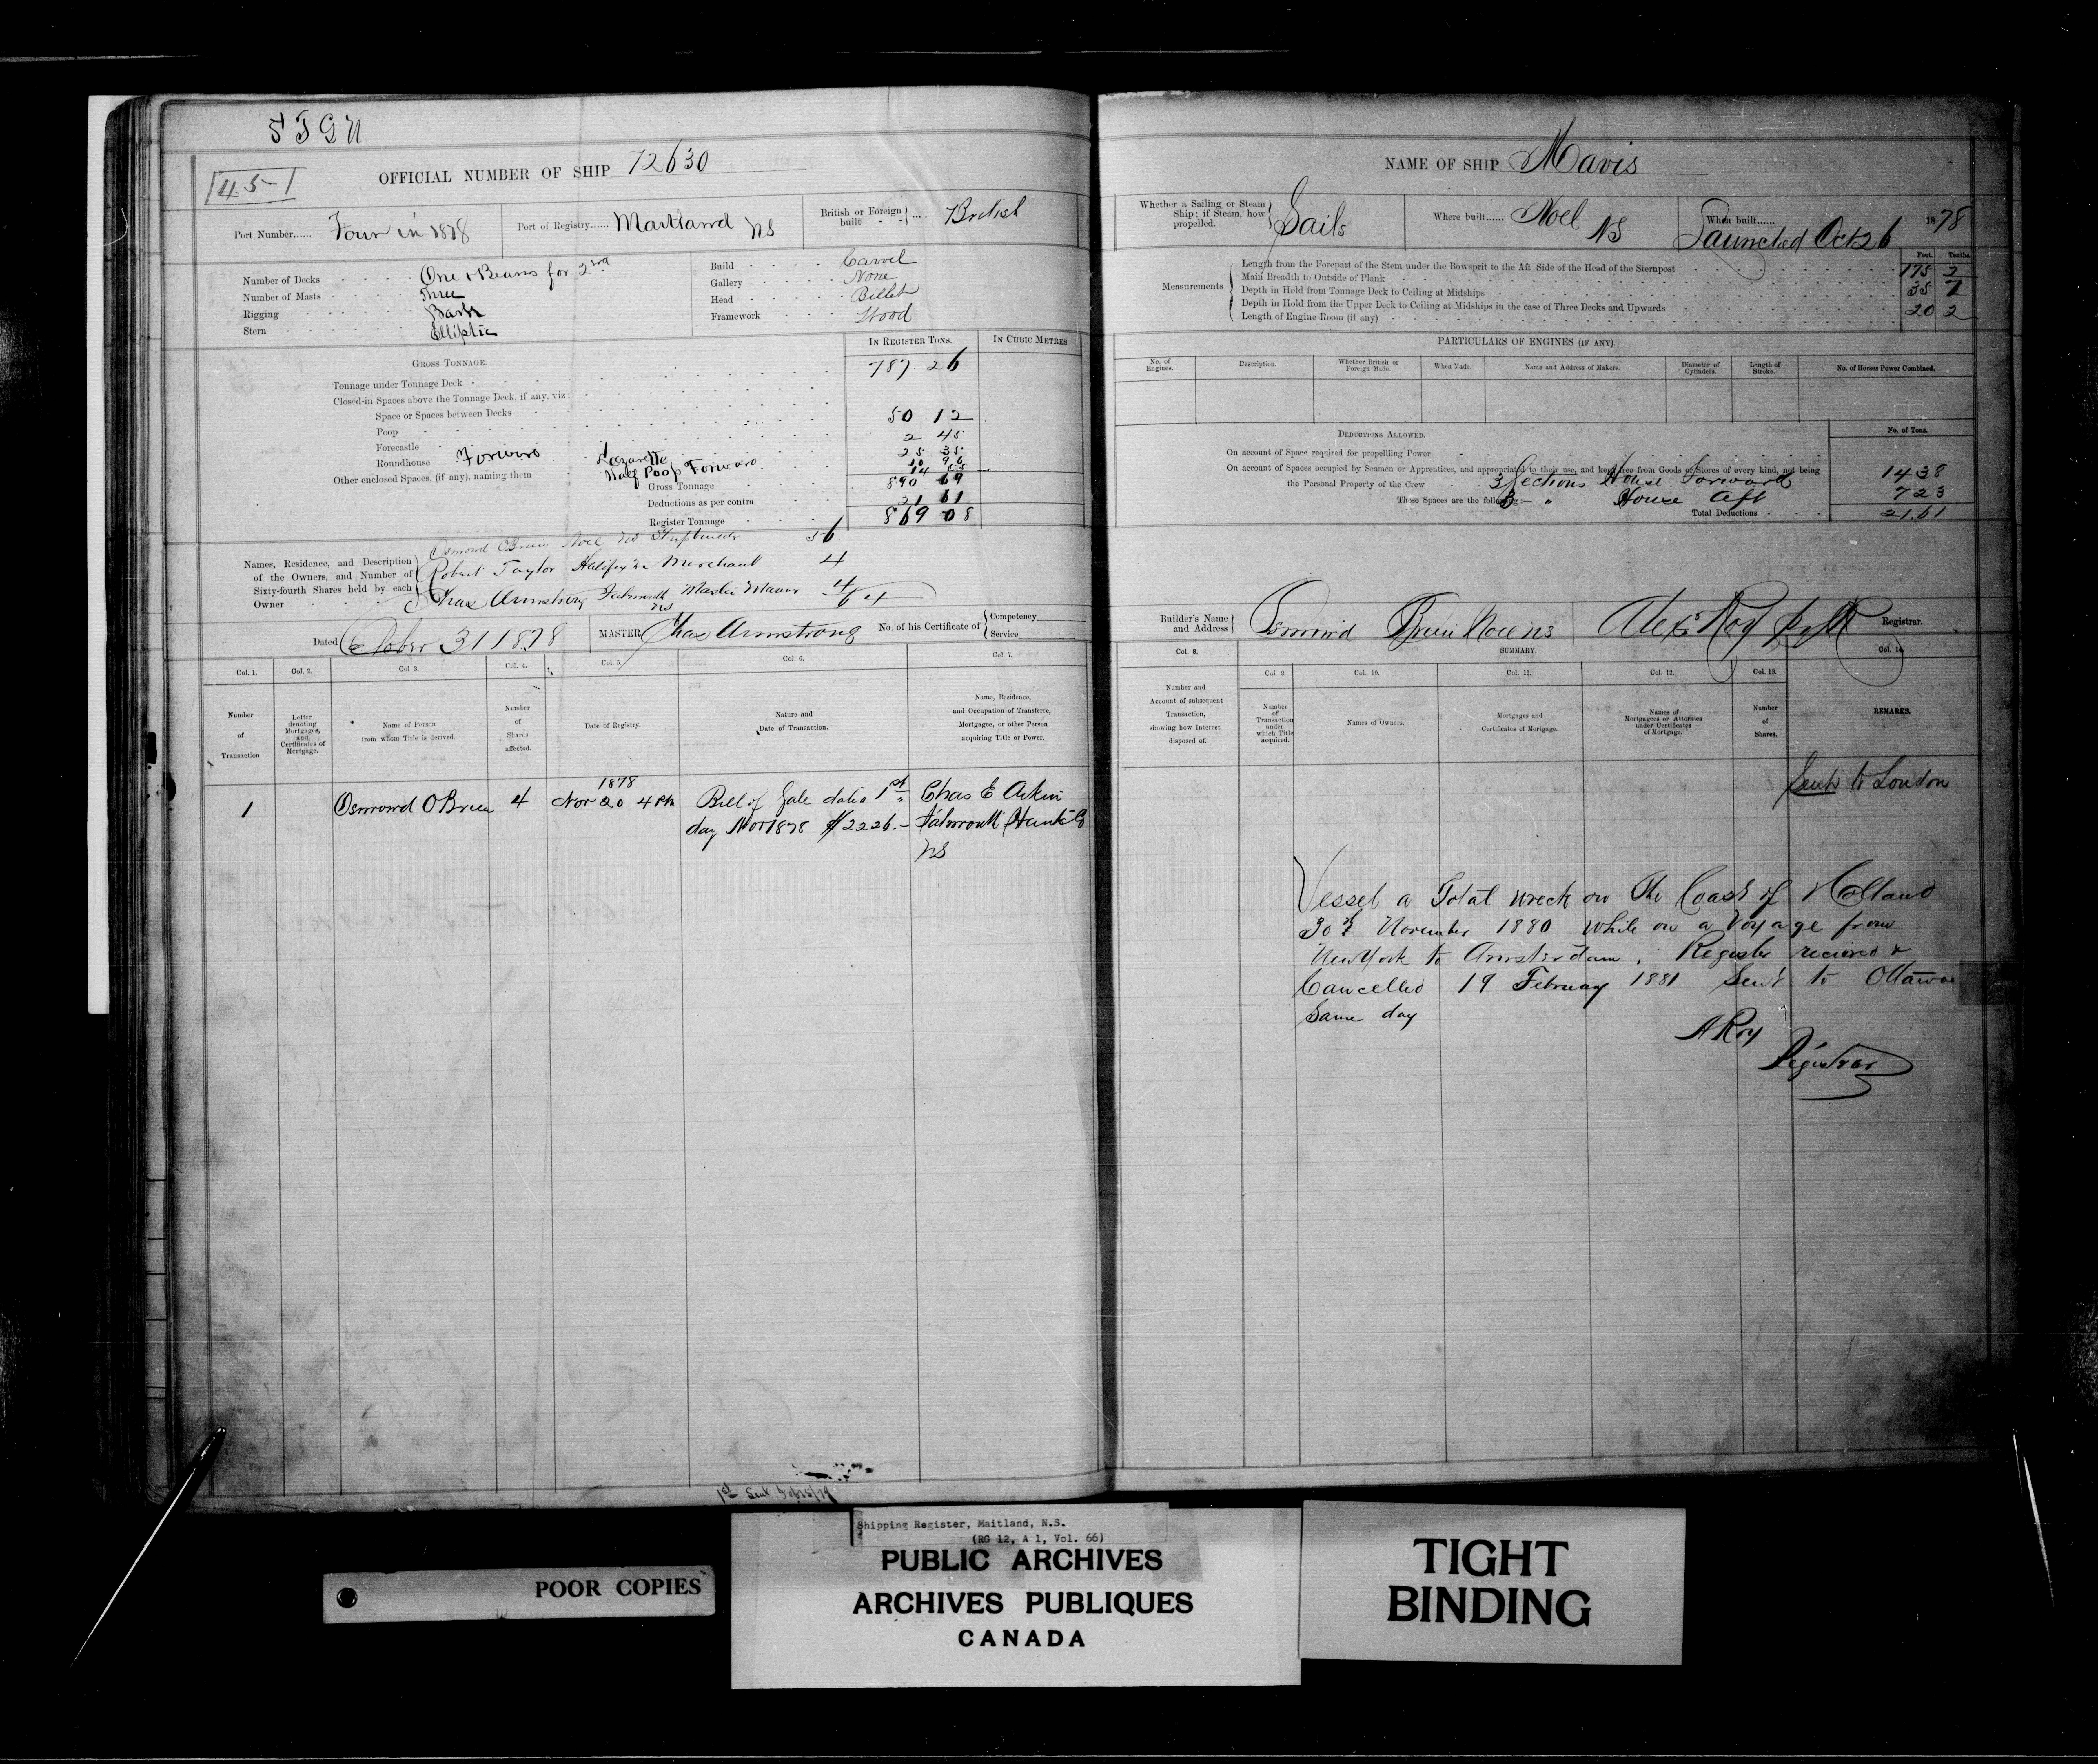 S T G N
45
OFFICIAL NUMBER OF SHIP 72630
Port Number...... Four in 1878
Port of Registry...... Maitland NS
British or Foreign built .... British
Number of Decks One & Beams for 2nd
Number of Masts Three
Rigging Bark
Stern Elliptic
Build Carvel
Gallery None
Head Billet
Framework Wood
IN REGISTER TONS. IN CUBIC METRES
GROSS TONNAGE.
Tonnage under Tonnage Deck 787 26
Closed-in Spaces above the Tonnage Deck, if any, viz:
Space or Spaces between Decks
Poop 50 12
Forecastle 2 45
Roundhouse Forward Lazarette 25 35
Other enclosed Spaces, (if any), naming them Half Poop Forward 10 96
14 55
Gross Tonnage 890 69
Deductions as per contra 21 61
Register Tonnage 869 08
Names, Residence, and Description of the Owners, and Number of Sixty-fourth Shares held by each Owner
Osmond OBrien Noel NS Shipbuilder 56
Robert Taylor Halifax NS Merchant 4
Chas Armstrong Falmouth NS Master Mariner 4
64
Dated October 31 1878
MASTER Chas Armstrong
No. of his Certificate of Competency
Service
Col. 1. Col. 2. Col. 3. Col. 4. Col. 5. Col. 6. Col. 7.
Number of Transaction
Letter denoting Mortgages, and Certificates of Mortgage.
Name of Person from whom Title is derived.
Number of Shares affected.
Date of Registry.
Nature and Date of Transaction.
Name, Residence, and Occupation of Transferee, Mortgagee, or other Person acquiring Title or Power.
1878
1 Osmond OBrien 4 Nov 20 4 Pm Bill of Sale dated 1st Chas E Aikin
day Nov 1878 $2226.– Falmouth Hants Co
NS
NAME OF SHIP Mavis
Whether a Sailing or Steam Ship; if Steam, how propelled. Sails
Where built...... Noel NS
When built...... Launched Oct 26 1878
Feet. Tenths.
Measurements
Length from the Forepart of the Stem under the Bowsprit to the Aft Side of the Head of the Sternpost 175 2
Main Breadth to Outside of Plank 35 7
Depth in Hold from Tonnage Deck to Ceiling at Midships 20 2
Depth in Hold from the Upper Deck to Ceiling at Midships in the case of Three Decks and Upwards
Length of Engine Room (if any)
PARTICULARS OF ENGINES (IF ANY).
No. of Engines.
Description.
Whether British or Foreign Made.
When Made.
Name and Address of Makers.
Diameter of Cylinders.
Length of Stroke.
No. of Horses Power Combined.
DEDUCTIONS ALLOWED.
No. of Tons.
On account of Space required for propelling Power
On account of Spaces occupied by Seamen or Apprentices, and appropriated to their use, and kept free from Goods or Stores of every kind, not being
the Personal Property of the Crew 3 Sections House Forward 14 38
These Spaces are the following:— 3 " House Aft 7 23
Total Deductions 21.61
Builder's Name and Address Osmond OBrien Noel NS
Alex Roy Registrar.
Col. 8.
SUMMARY.
Col. 9. Col. 10. Col. 11. Col. 12. Col. 13. Col. 14
Number and Account of subsequent Transaction, showing how Interest disposed of.
Number of Transaction under which Title acquired.
Names of Owners.
Mortgages and Certificates of Mortgage.
Names of Mortgagees or Attornies under Certificates of Mortgage.
Number of Shares.
REMARKS.
Sent to London
Vessel a Total wreck on the Coast of Holland
30th November 1880 while on a Voyage from
New York to Amsterdam. Register recieved &
Cancelled 19 February 1881 Sent to Ottawa
Same day
A Roy
Registrar
1st Sent
Shipping Register, Maitland, N.S.
(RG 12, A 1, Vol. 66)
POOR COPIES
PUBLIC ARCHIVES
ARCHIVES PUBLIQUES
CANADA
TIGHT
BINDING